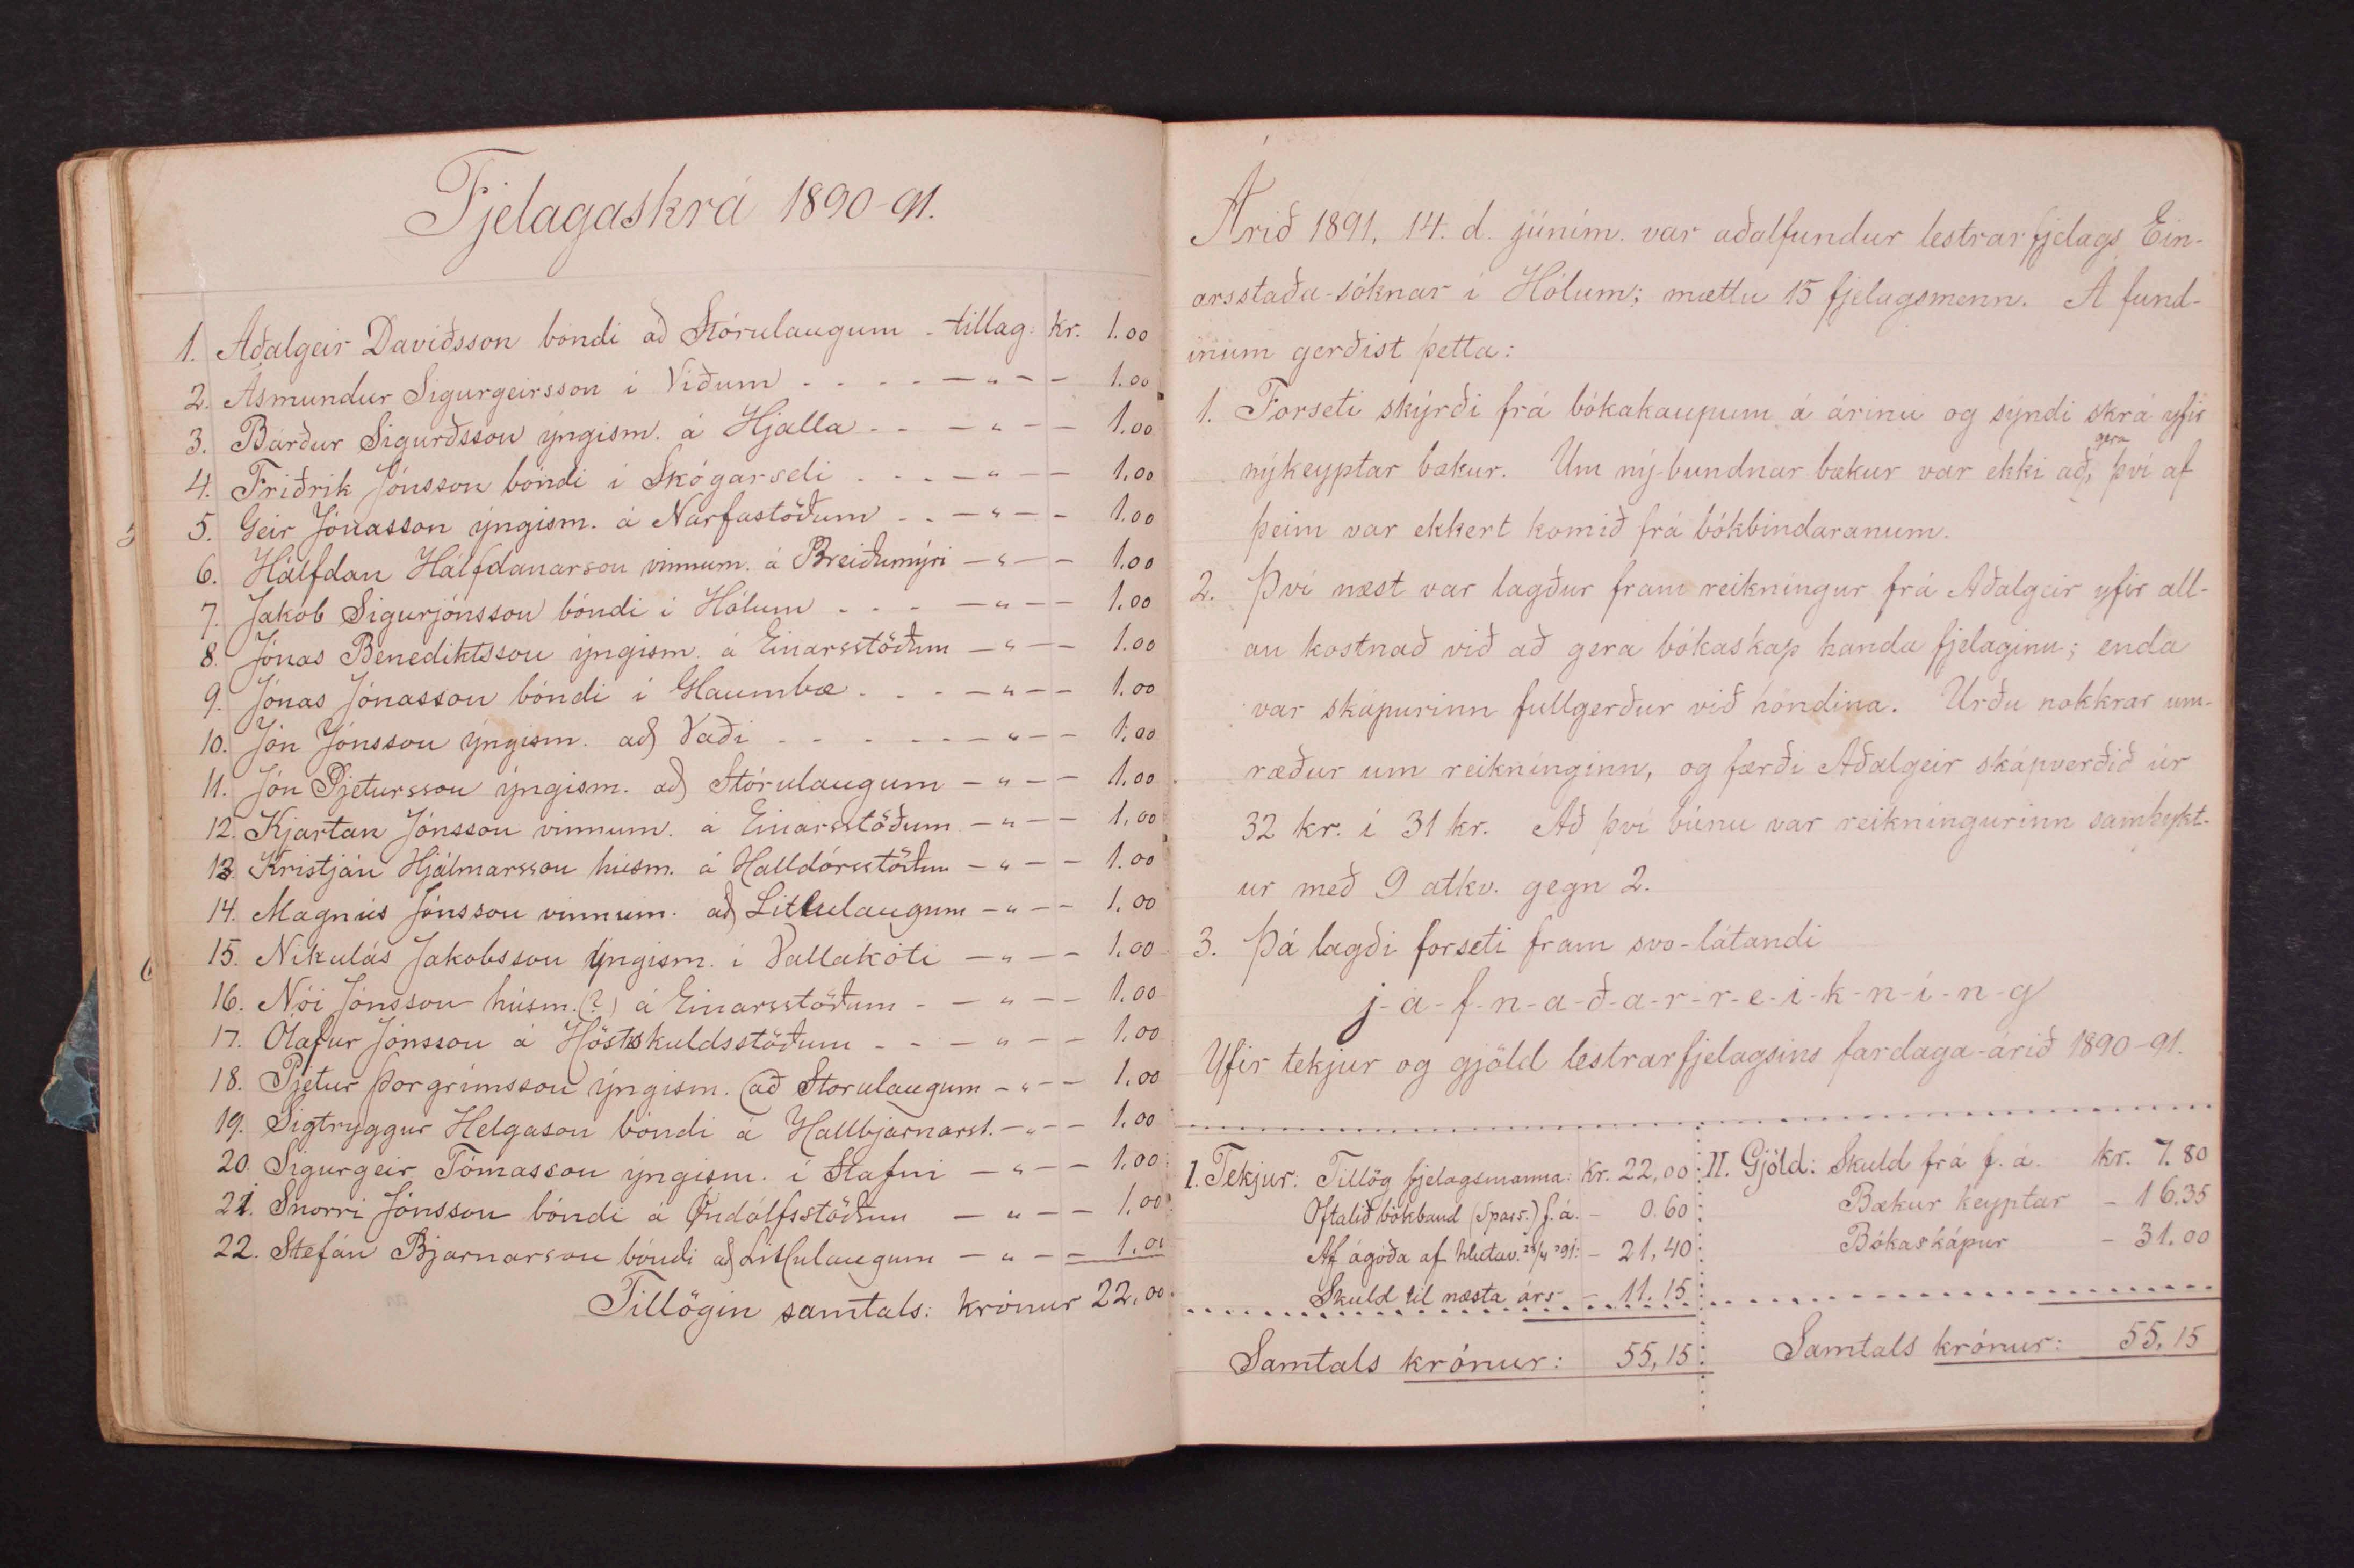 Fjelagaskrá 1890-91.
1. Aðalgeir Davíðsson bóndi að Stórulaugum - tillag: kr. 1.00
2. Ásmundur Sigurgeirsson í Víðum - - - - — „ — — 1.00
3. Bárður Sigurðsson ýngism. á Hjalla - - — „ — — 1.00
4. Friðrik Jónsson bóndi í Skógarseli - - - — „ — — 1.00
5. Geir Jónasson ýngism. á Narfastöðum - - — „ — — 1.00
6. Hálfdan Hálfdanarson vinnum. á Breiðumýri — „ — — 1.00
7. Jakob Sigurjónsson bóndi í Hólum - - - — „ — — 1.00
8. Jónas Benediktsson ýngism. á Einarsstöðum — „ — — 1.00
9. Jónas Jónasson bóndi í Glaumbæ - - - — „ — — 1.00
10. Jón Jónsson ýngism. að Vaði - - - - - - — „ — — 1.00
11. Jón Pjetursson ýngism. að Stórulaugum — „ — — 1.00
12. Kjartan Jónsson vinnum. á Einarsstöðum — „ — — 1.00
13. Kristján Hjálmarsson húsm. á Halldórsstöðum — „ — — 1.00
14. Magnús Jónsson vinnum. að Litlulaugum — „ — — 1.00
15. Nikulás Jakobsson ýngism. í Vallakoti — „ — — 1.00
16. Nói Jónsson húsm. (?) á Einarsstöðum - — „ — — 1.00
17. Ólafur Jónsson á Höskuldsstöðum - - — „ — — 1.00
18. Pjetur Þorgrímsson ýngism. að Stórulaugum — „ — — 1.00
19. Sigtryggur Helgason bóndi á Hallbjarnarst. — „ — — 1.00
20. Sigurgeir Tómasson ýngism. í Stafni — „ — — 1.00
21. Snorri Jónsson bóndi á Öndólfsstöðum — „ — — 1.00
22. Stefán Bjarnarson bóndi að Litlulaugum — „ — — 1.00
Tillögin samtals: krónur 22.00
Árið 1891, 14. d. júním. var aðalfundur lestrarfjelags Ein-
arsstaða-sóknar í Hólum; mættu 15 fjelagsmenn. Á fund-
inum gerðist þetta:
1. Forseti skýrði frá bókakaupum á árinu og sýndi skrá yfir
nýkeyptar bækur. Um ný-bundnar bækur var ekki að gera, því af
þeim var ekkert komið frá bókbindaranum.
2. Því næst var lagður fram reikníngur frá Aðalgeir yfir all-
an kostnað við að gera bókaskáp handa fjelaginu; enda
var skápurinn fullgerður við höndina. Urðu nokkrar um-
ræður um reiknínginn, og færði Aðalgeir skápverðið úr
32 kr. í 31 kr. Að því búnu var reikníngurinn samþykt-
ur með 9 atkv. gegn 2.
3. Þá lagði forseti fram svo-látandi
j-a-f-n-a-ð-a-r-r-e-i-k-n-í-n-g
Yfir tekjur og gjöld lestrarfjelagsins fardaga-árið 1890-91.
I. Tekjur: Tillög fjelagsmanna: kr. 22,00
Oftalið bókband (Spars.) f. á. - 0.60
Af ágóða af hlutav. 28/4 '91: - 21,40
Skuld til næsta árs - 11.15
Samtals krónur: 55,15
II. Gjöld: Skuld frá f. á. kr. 7.80
Bækur keyptar - 16.35
Bókaskápur - 31.00
Samtals krónur: 55,15